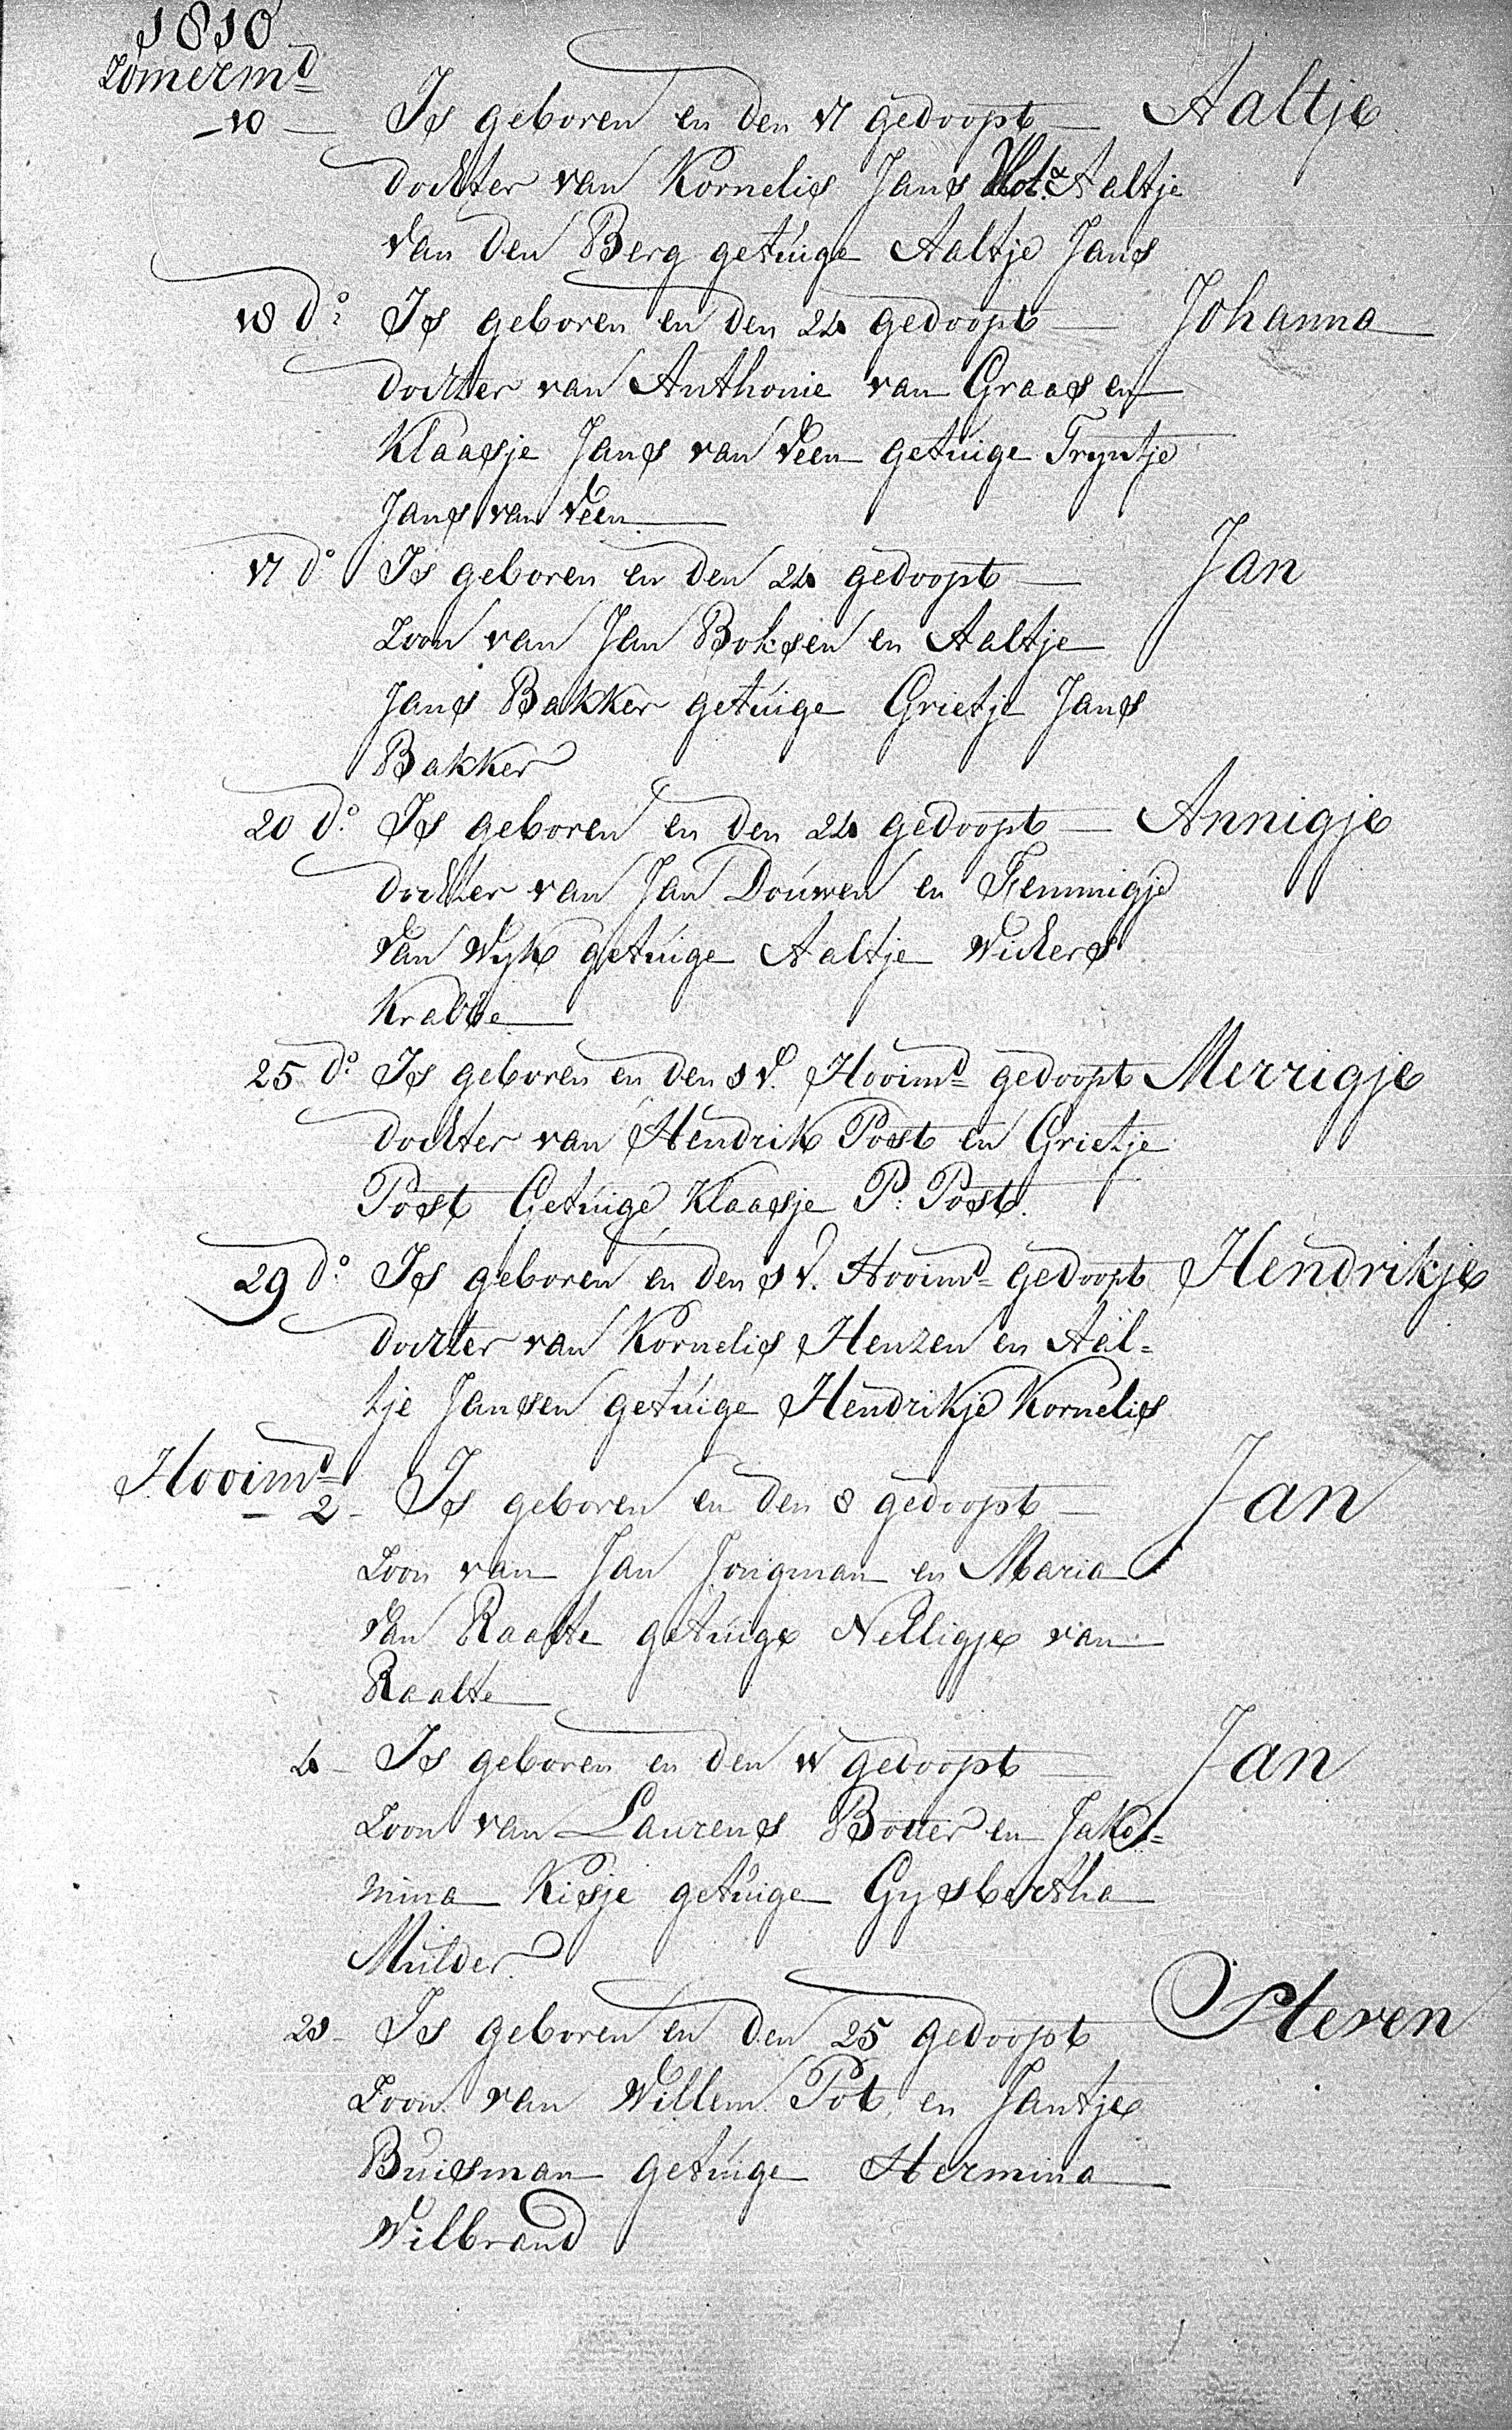 1810
Zomermd
10 Is geboren en den 17 gedoopt Aaltje
dochter van Kornelis Jans & Aaltje
van den Berg getuige Aaltje Jans
18 do Is geboren en den 24 gedoopt Johanna
dochter van Anthonie van Graas en
Klaasje Jans van Veen getuige Tryntje
Jans van Veen
17 do Is geboren en den 24 gedoopt Jan
Zoon van Jan Boksen en Aaltje
Jans Bakker getuige Grietje Jans
Bakker
20 do Is geboren en den 24 gedoopt Annigje
dochter van Jan Douwen en Femmigje
van Wyk getuige Aaltje Wichers
Krabbe
25 do Is geboren en den 1 v. Hooimd gedoopt Merrigje
dochter van Hendrik Post en Grietje
Post Getuige Klaasje P. Post.
29 do Is geboren en den 1 v. Hooimd gedoopt Hendrikje
dochter van Kornelis Henzen en Aal=
tje Jansen getuige Hendrikje Kornelis
Hooimd
2 Is geboren en den 8 gedoopt Jan
Zoon van Jan Jongman en Maria
van Raalte getuige Nelligje van
Raalte
4 Is geboren en den 11 gedoopt Jan
Zoon van Laurens Botter en Jako=
mina Kisje getuige Gysbertha
Mulder
21 Is geboren en den 25 gedoopt Steven
Zoon van Willem Pot en Jantje
Buisman getuige Hermina
Wilbrand